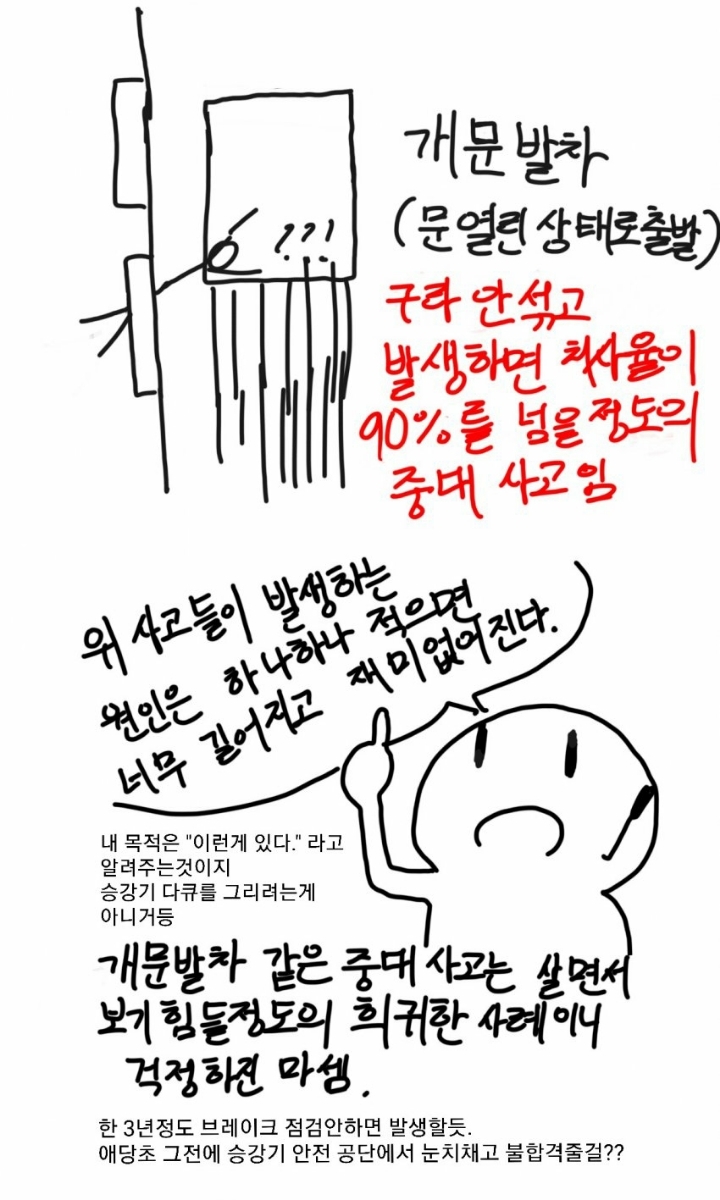 ???
개문발차
(문열린상태로출발)
구라 안섞고
발생하면 치사율이
90%를 넘을정도의
중대 사고임
위 사고들이 발생하는
원인은 하나하나 적으면
너무 길어지고 재미없어진다.
내 목적은 "이런게 있다." 라고
알려주는것이지
승강기 다큐를 그리려는게
아니거등
개문발차 같은 중대사고는 살면서
보기힘들정도의 희귀한 사례이니
걱정하진 마셈.
한 3년정도 브레이크 점검안하면 발생할듯.
애당초 그전에 승강기 안전 공단에서 눈치채고 불합격줄걸??